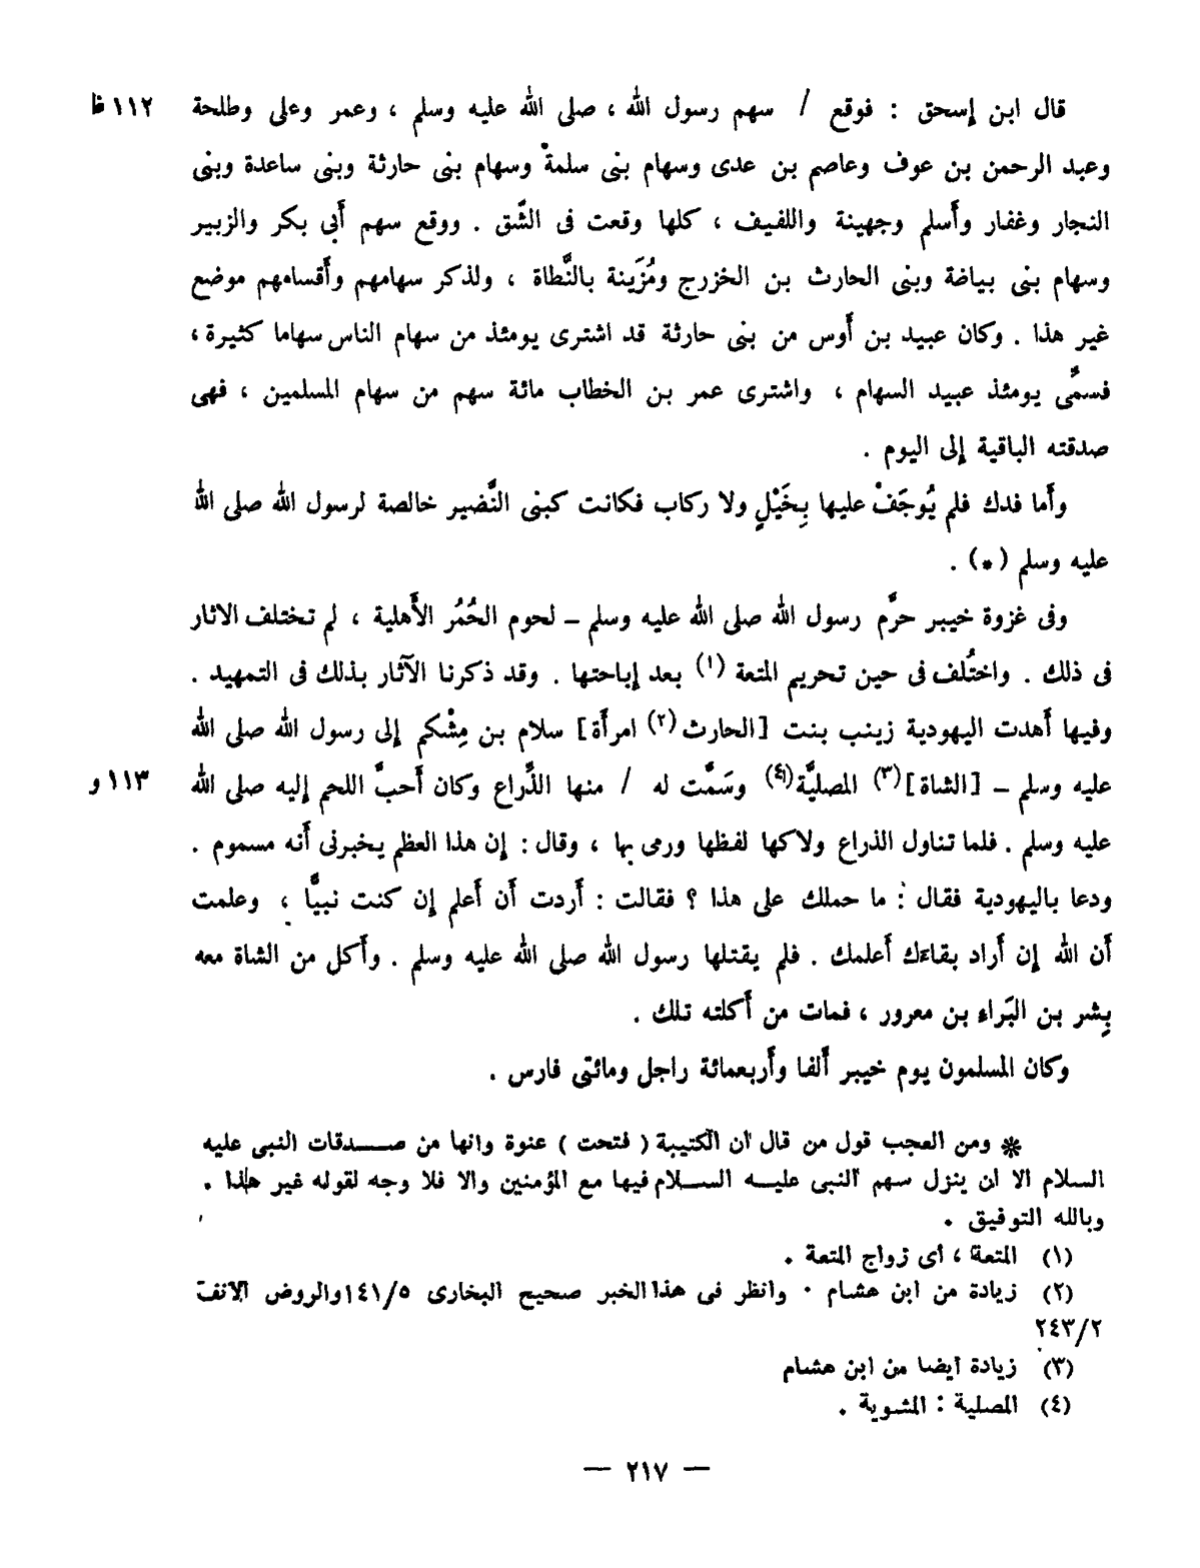 قال ابن إسحق : فوقع / سهم رسول الله ، صلى الله عليه وسلم ، وعمر وعلى وطلحة ١١٢ ظ
وعبد الرحمن بن عوف وعاصم بن عدى وسهام بنى سلمة وسهام بنى حارثة وبنى ساعدة وبنى
النجار وغفار وأسلم وجهينة واللفيف ، كلها وقعت فى الشَّق . ووقع سهم أبى بكر والزبير
وسهام بنى بياضة وبنى الحارث بن الخزرج ومُزَينة بالنَّطاة ، ولذكر سهامهم وأقسامهم موضع
غير هذا . وكان عبيد بن أوس من بنى حارثة قد اشترى يومئذ من سهام الناس سهاما كثيرة ،
فسمِّى يومئذ عبيد السهام ، واشترى عمر بن الخطاب مائة سهم من سهام المسلمين ، فهى
صدقته الباقية إلى اليوم .
وأما فدك فلم يُوجَفْ عليها بِخَيْلٍ ولا ركاب فكانت كبنى النَّضير خالصة لرسول الله صلى الله
عليه وسلم (*) .
وفى غزوة خيبر حرَّم رسول الله صلى الله عليه وسلم – لحوم الحُمُر الأَهلية ، لم تختلف الاثار
فى ذلك . واختُلف فى حين تحريم المتعة (١) بعد إباحتها . وقد ذكرنا الآثار بذلك فى التمهيد .
وفيها أهدت اليهودية زينب بنت [الحارث (٢) امرأة] سلام بن مِشْكم إلى رسول الله صلى الله
عليه وسلم – [الشاة] (٣) المصليَّة (٤) وسَمَّت له / منها الذِّراع وكان أحبَّ اللحم إليه صلى الله ١١٣ و
عليه وسلم . فلما تناول الذراع ولاكها لفظها ورمى بها ، وقال : إن هذا العظم يخبرنى أنه مسموم .
ودعا باليهودية فقال : ما حملك على هذا ؟ فقالت : أردت أن أعلم إن كنت نبيًّا ، وعلمت
أن الله إن أراد بقاءك أعلمك . فلم يقتلها رسول الله صلى الله عليه وسلم . وأكل من الشاة معه
بِشر بن البَراء بن معرور ، فمات من أكلته تلك .
وكان المسلمون يوم خيبر ألفا وأربعمائة راجل ومائتى فارس .
* ومن العجب قول من قال ان الكتيبة ( فتحت ) عنوة وانها من صدقات النبى عليه
السلام الا ان ينزل سهم النبى عليه السلام فيها مع المؤمنين والا فلا وجه لقوله غير هذا .
وبالله التوفيق .
(١) المتعة ، أى زواج المتعة .
(٢) زيادة من ابن هشام . وانظر فى هذا الخبر صحيح البخارى ١٤١/٥ والروض الانف
٢٤٣/٢
(٣) زيادة أيضا من ابن هشام
(٤) المصلية : المشوية .
— ٢١٧ —